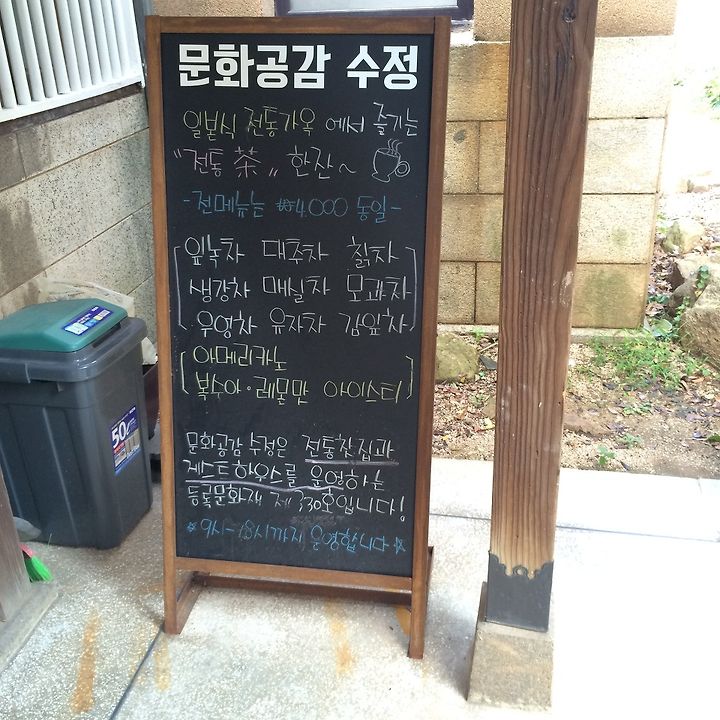 문화공감 수정
일본식 전통가옥 에서 즐기는
"전통 茶" 한잔~
-전메뉴는 ₩4.000 동일-
잎녹차 대추차 칡차
생강차 매실차 모과차
우엉차 유자차 감잎차
아메리카노
복숭아·레몬맛 아이스티
문화공감 수정은 전통찻집과
게스트하우스를 운영하는
등록문화재 제330호입니다!
☆9시-18시까지 운영합니다☆
50L